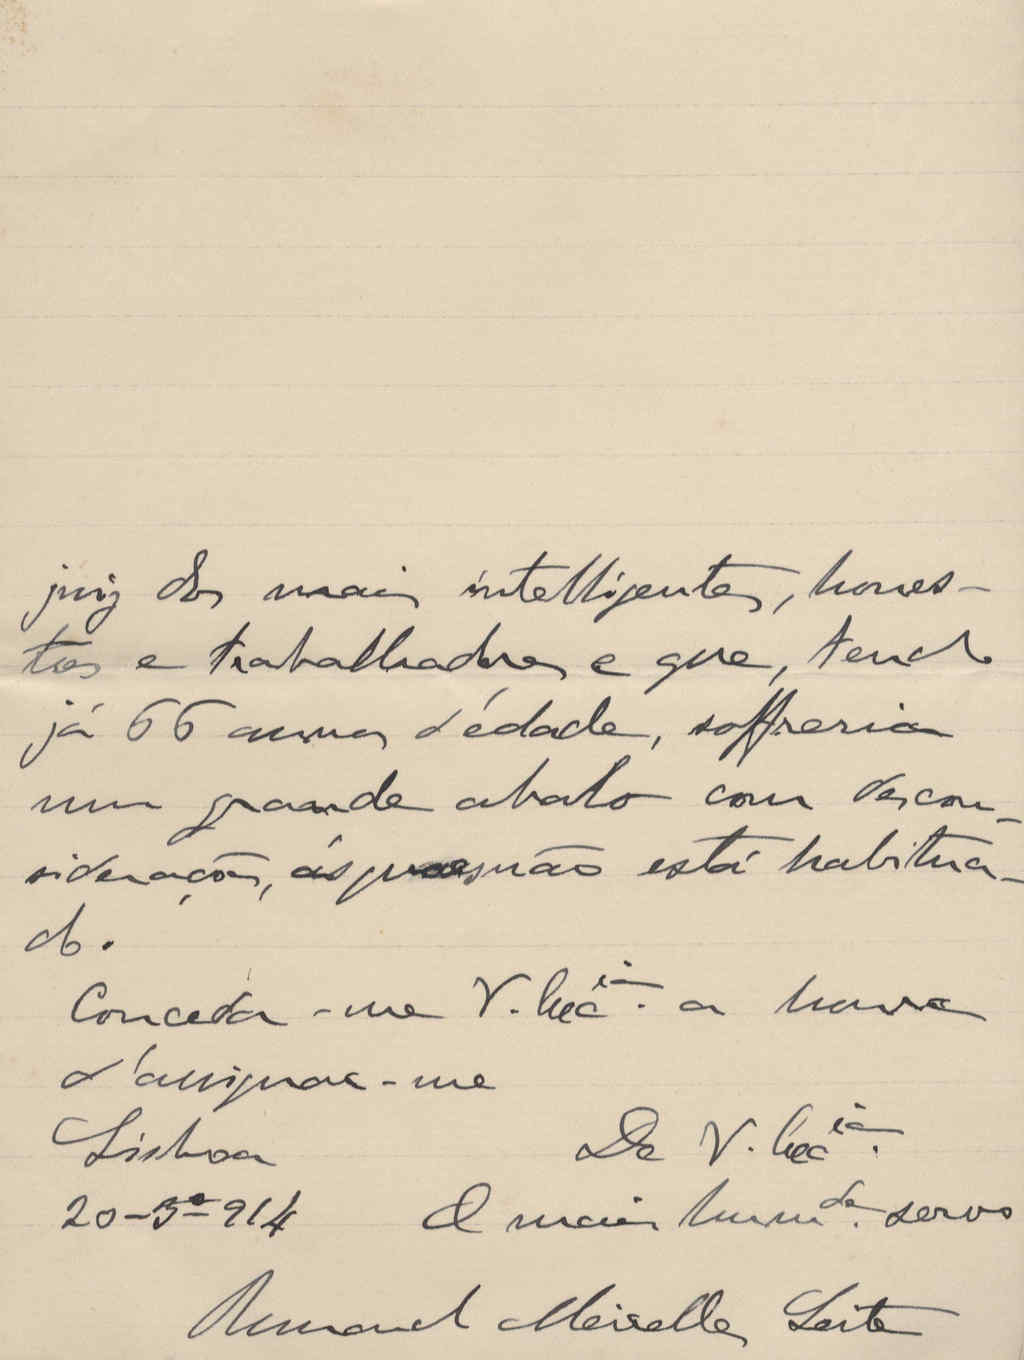 juiz dos mais intelligentes, hones-
tos e trabalhadores e que, tendo
já 66 annos d'édade, soffreria
um grande abalo com descon-
siderações, ás quaes não está habitua-
do.
Conceda-me V. Excia. a honra
d'assignar-me
Lisboa De V. Excia.
20-3º-914 O mais humde. servo
Meirelles Leite